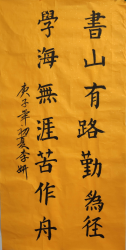 書山有路勤為徑
學海無涯苦作舟
庚子年初夏李